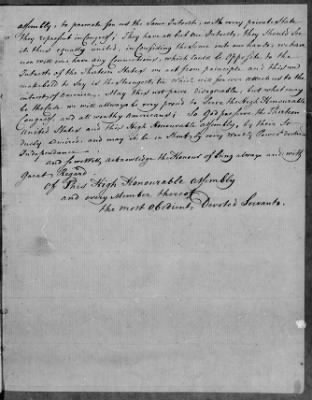 assembly; to provide for us the same Interests, with every private State
They represent in Congress; They have at but one Interests; They should See
it thus equally united, in Confiding the same into our hands; we have
nor will ever have any Connections, which could be Opposite to the
Interests of the Thirteen States; we act from principle, and this we
make bold to Say is the Strongest tie which will for ever attach us to the
interests of america, May this not prove disagreable, but what may
be the fate we will allways be very proud to Serve the High Honourable
Congress, and all worthy americans; So God preserve the Thirteen
United States and This High Honourable assembly, by their So
duly desired: and may it be in Short by every World's Power declared
Independance
and for us with, acknowledge the Honour of being always and with
Great Regard
of This High Honourable assembly
and every Member thereof
the most obedient Devoted Servants.